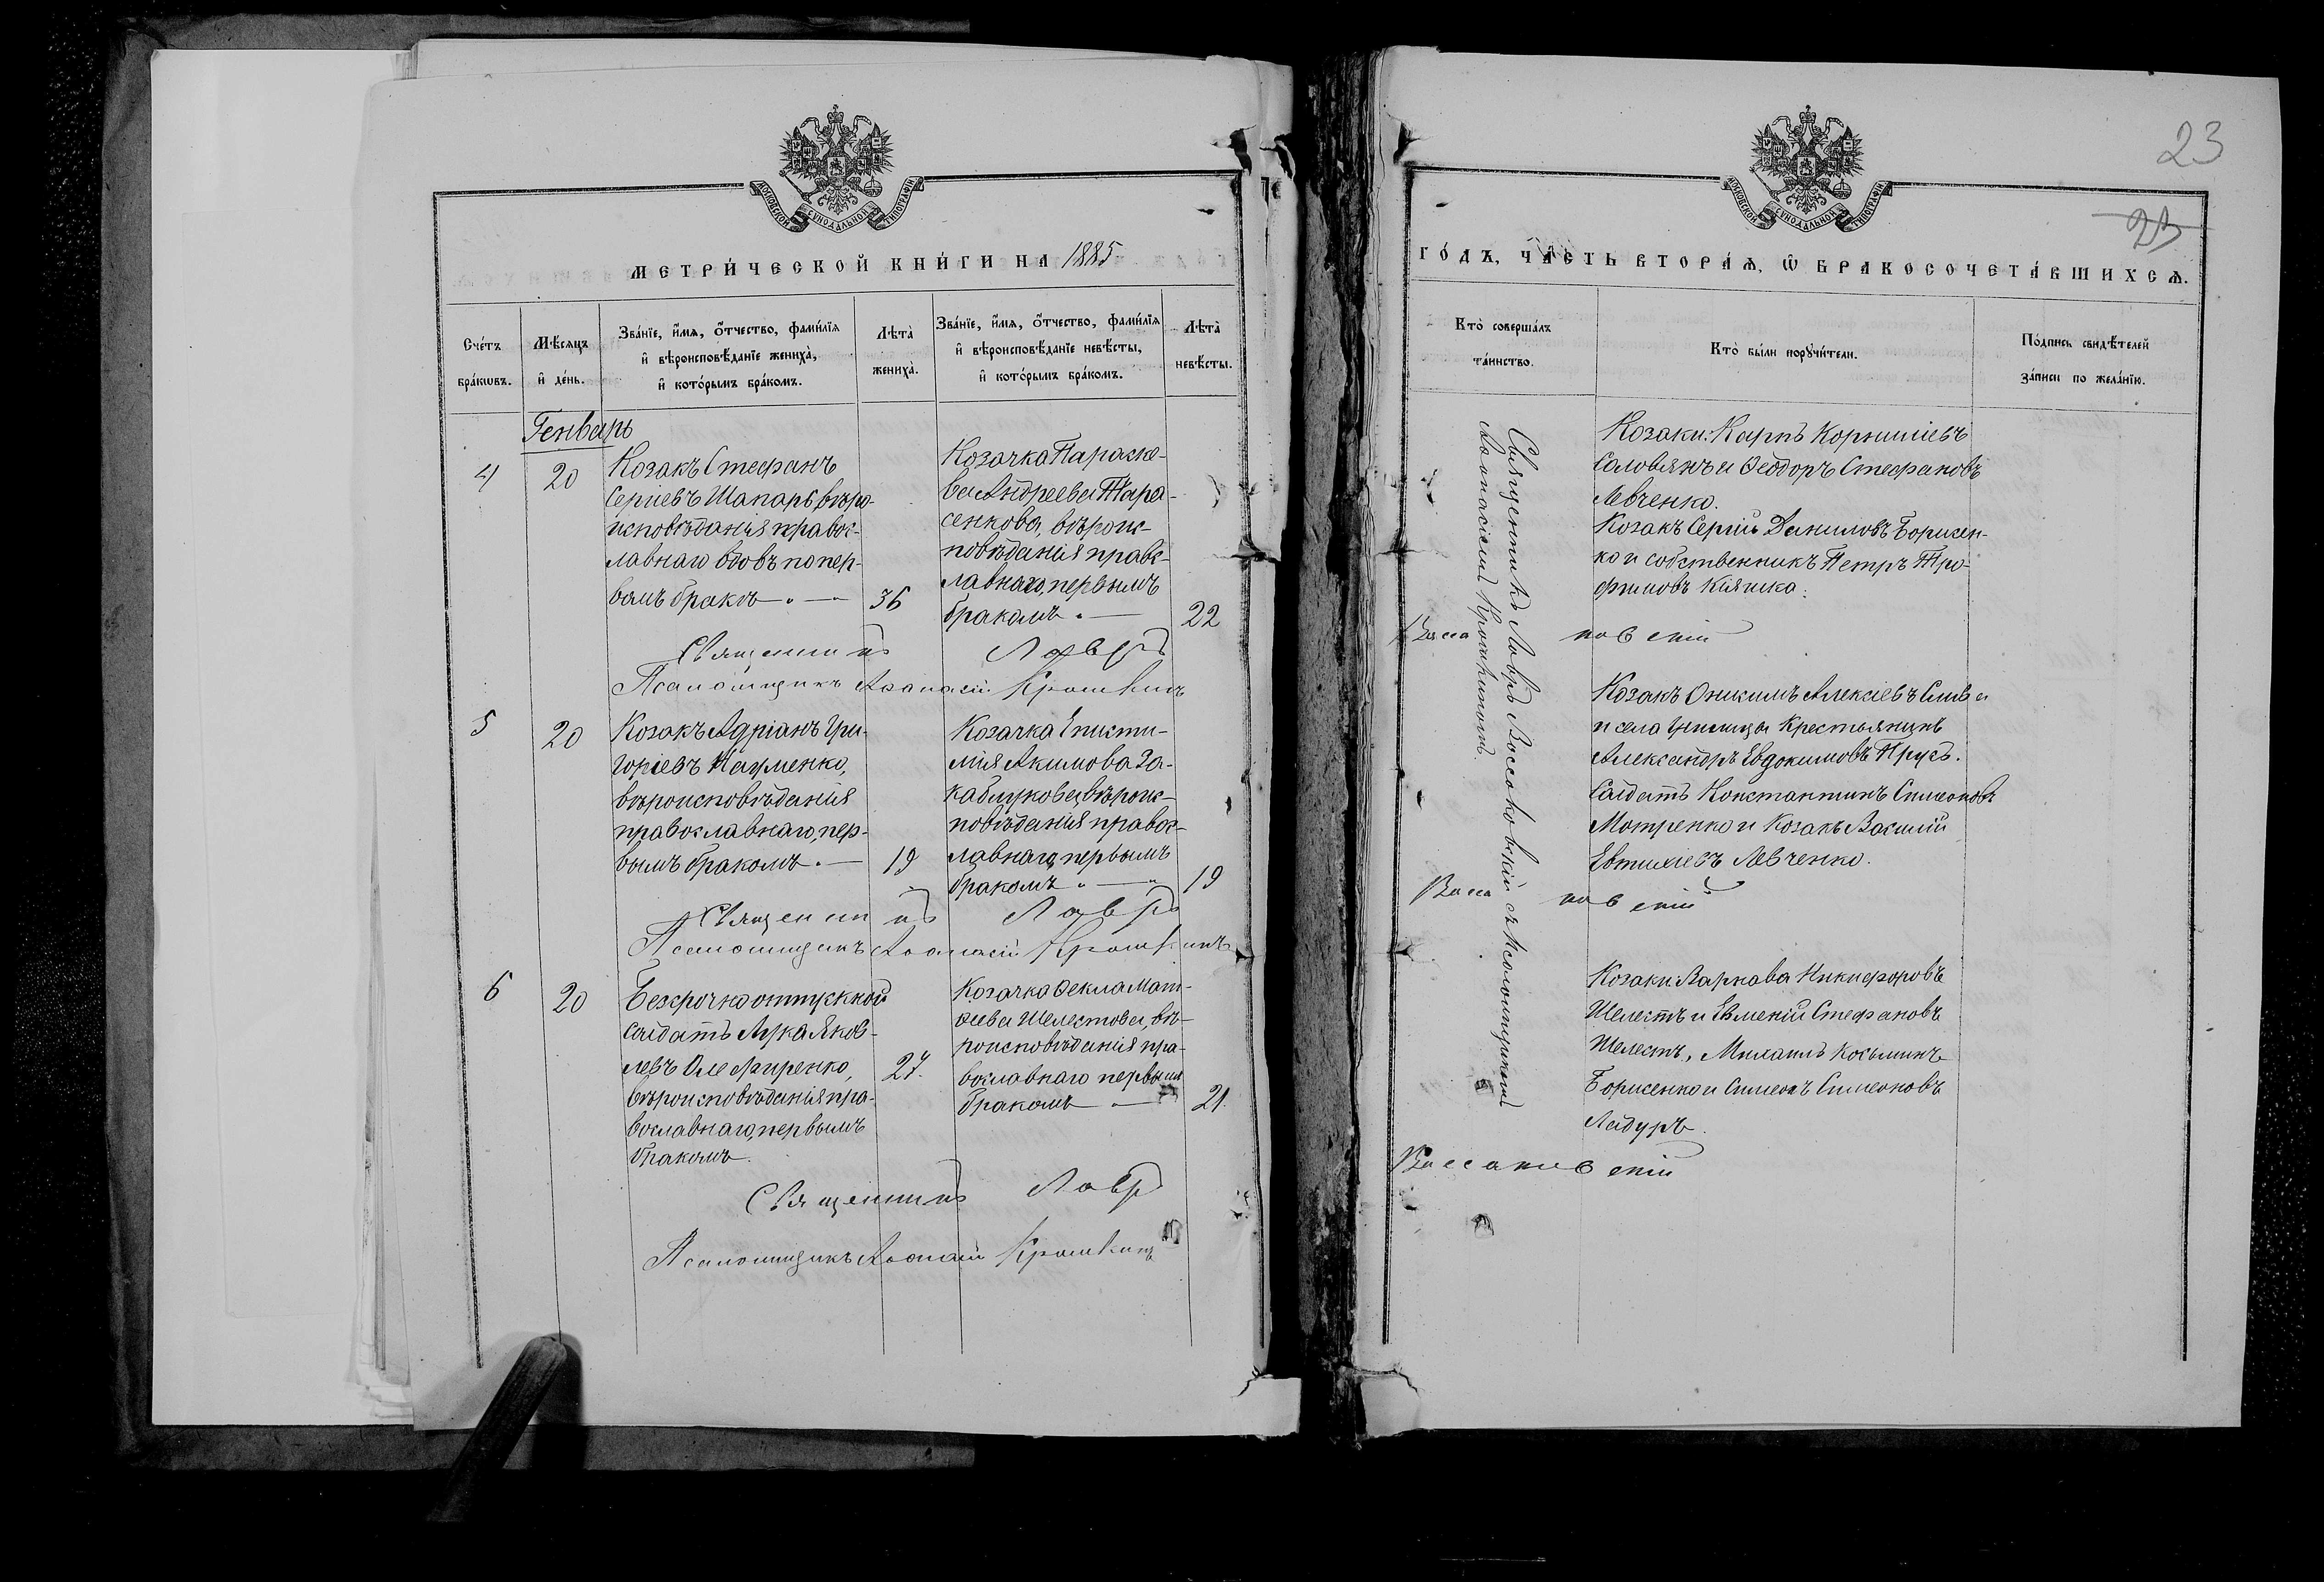 МОСКОВСКОЙ СѴНОДАЛЬНОЙ ТИПОГРАФІИ
МЕТРИ́ЧЕСКОЙ КНИ́ГИ НА 1885
Сче́тъ бра́кѡвъ.
Мѣ́сяцъ и҆ де́нь.
Зва́нїе, и҆́мѧ, ѻ҆́тчество, фами́лїѧ
и҆ вѣроисповѣ́данїе жениха̀,
и҆ кото́рымъ бра́комъ.
Лѣ́та̀ жениха̀.
Зва́нїе, и҆́мѧ, ѻ҆́тчество, фами́лїѧ
и҆ вѣроисповѣ́данїе невѣ́сты,
и҆ кото́рымъ бра́комъ.
Лѣ́та̀ невѣ́сты.
Генварь
4
20
Козакъ Стефанъ
Сергіевъ Шапарь, вѣро-
исповѣданія правос-
лавнаго вдовъ по пер-
вомъ бракѣ
36
Козачка Параске-
ва Андреева Тара-
сенкова, вѣроис-
повѣданія правос-
лавнаго, первымъ
бракомъ
22
Священникъ Лавръ
Псаломщикъ Аѳанасій Крошкинъ
5
20
Козакъ Адріанъ Гри-
горіевъ Науменко,
вѣроисповѣданія
православнаго, пер-
вымъ бракомъ
19
Козачка Еписти-
мія Акимова За-
каблукова, вѣроис-
повѣданія правос-
лавнаго, первымъ
бракомъ
19
Священникъ Лавръ
Псаломщикъ Аѳанасій Крошкинъ
6
20
Безсрочно отпускной
солдатъ Лука Яков-
левъ Олефиренко,
вѣроисповѣданія пра-
вославнаго, первымъ
бракомъ.
27.
Козачка Ѳекла Мат-
ѳеева Шелестова, вѣ-
роисповѣданія пра-
вославнаго первымъ
бракомъ
21.
Священникъ Лавръ
Псаломщикъ Аѳанасій Крошкинъ
МОСКОВСКОЙ СѴНОДАЛЬНОЙ ТИПОГРАФІИ
23
23
ГО́ДЪ, ЧА́СТЬ ВТОРА́Ѧ, Ѽ БРАКОСОЧЕТА́ВШИХСѦ.
Кто̀ соверша́лъ
та́инство.
Кто̀ бы́ли порꙋчи́тели.
По́дпись свидѣ́телей
за́писи по жела́нїю.
Священникъ Лавръ Воссаковскій съ псаломщикомъ
Аѳанасіемъ Крошкинымъ.
Козаки: Карпъ Корниліевъ
Саловянъ и Ѳеодоръ Стефановъ
Левченко.
Козакъ Сергій Даниловъ Борисен-
ко и собственникъ Петръ Тро-
фимовъ Кияшко.
Воссаковскій
Козакъ Онисимъ Алексіевъ Слива
и села Гнилицы крестьянинъ
Александръ Евдокимовъ Прусъ.
Солдатъ Константинъ Симеоновъ
Мотренко и козакъ Василій
Евтихіевъ Левченко.
Воссаковскій
Козаки: Варнава Никифоровъ
Шелестъ и Евменій Стефановъ
Шелестъ, Михаилъ Косьминъ
Борисенко и Симеонъ Симеоновъ
Лайдуръ.
Воссаковскій